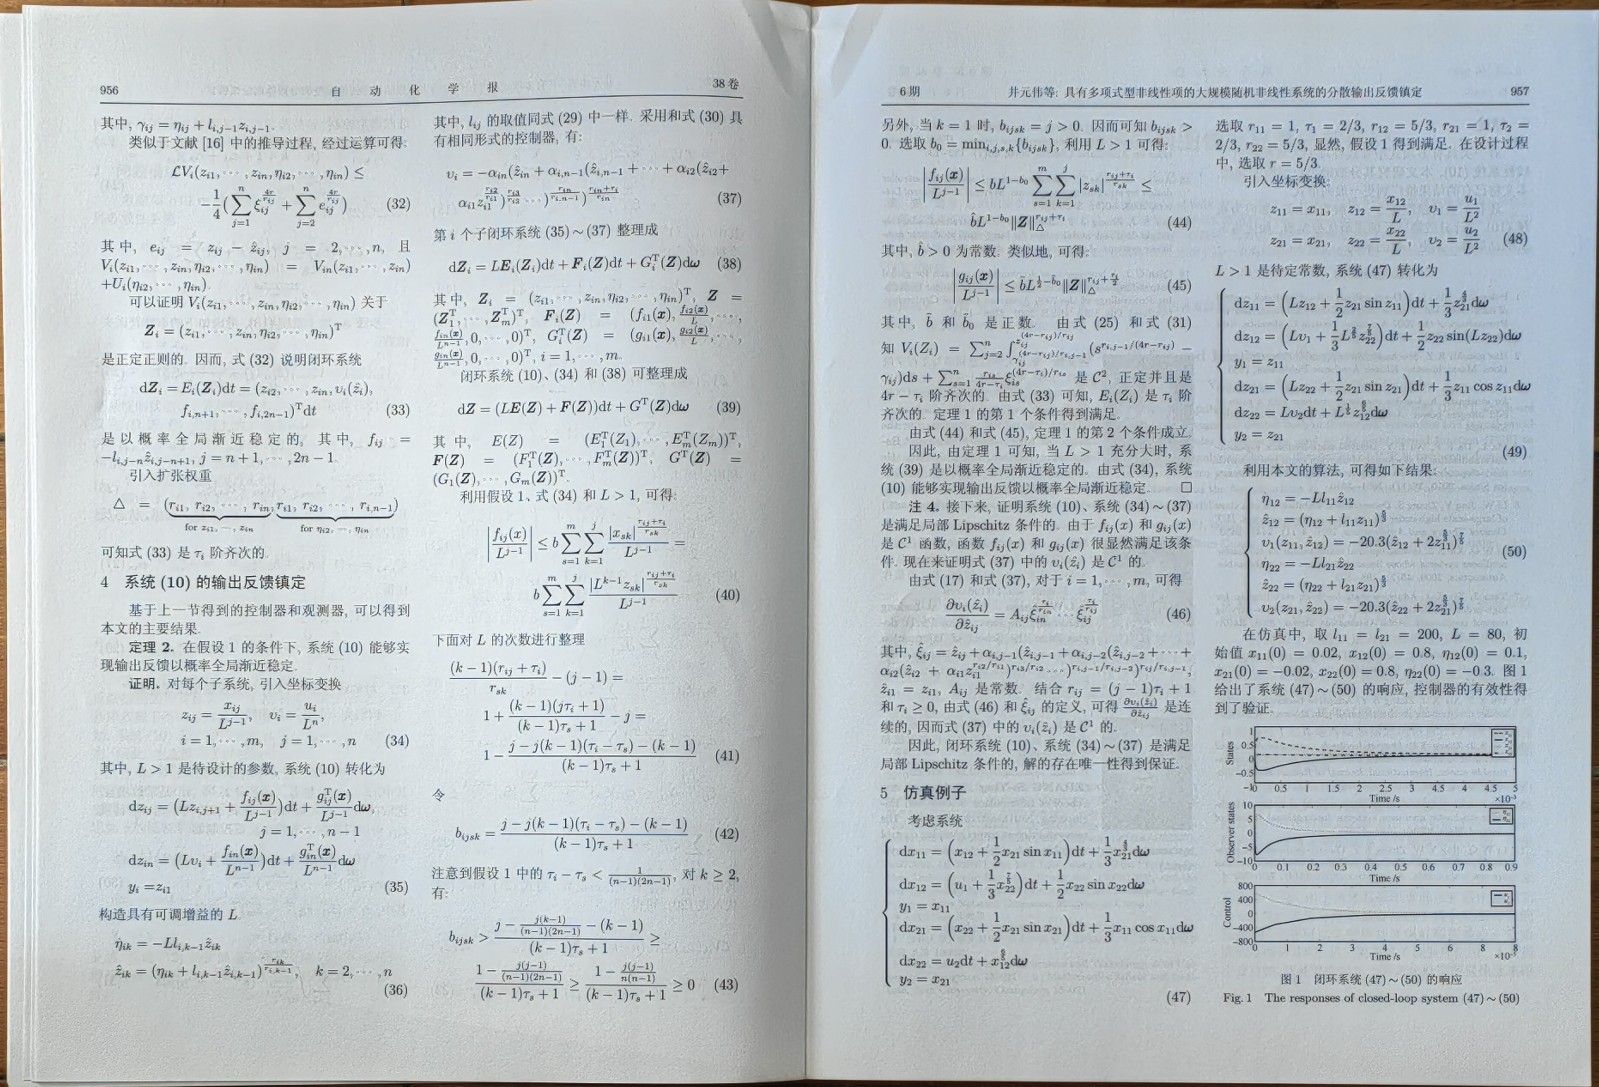 956
自 动 化 学 报
38 卷
其中, γ_ij = η_ij + l_{i,j−1} z_{i,j−1}.
类似于文献 [16] 中的推导过程, 经过运算可得:
ℒV_i(z_i1, ···, z_in, η_i2, ···, η_in) ≤
−1/4 (∑_{j=1}^{n} ξ_ij^{4r/r_ij} + ∑_{j=2}^{n} e_ij^{4r/r_ij}) (32)
其中, e_ij = z_ij − ẑ_ij, j = 2, ···, n, 且
V_i(z_i1, ···, z_in, η_i2, ···, η_in) = V_in(z_i1, ···, z_in)
+U_i(η_i2, ···, η_in).
可以证明 V_i(z_i1, ···, z_in, η_i2, ···, η_in) 关于
Z_i = (z_i1, ···, z_in, η_i2, ···, η_in)^T
是正定正则的. 因而, 式 (32) 说明闭环系统
dZ_i = E_i(Z_i)dt = (z_i2, ···, z_in, υ_i(ẑ_i),
f_{i,n+1}, ···, f_{i,2n−1})^T dt (33)
是以概率全局渐近稳定的, 其中, f_ij =
−l_{i,j−n} ẑ_{i,j−n+1}, j = n+1, ···, 2n−1.
引入扩张权重
△ = (r_i1, r_i2, ···, r_in, r_i1, r_i2, ···, r_{i,n−1})
for z_i1, ···, z_in for η_i2, ···, η_in
可知式 (33) 是 τ_i 阶齐次的.
4 系统 (10) 的输出反馈镇定
基于上一节得到的控制器和观测器, 可以得到
本文的主要结果.
定理 2. 在假设 1 的条件下, 系统 (10) 能够实
现输出反馈以概率全局渐近稳定.
证明. 对每个子系统, 引入坐标变换
z_ij = x_ij/L^{j−1}, υ_i = u_i/L^n,
i = 1, ···, m, j = 1, ···, n (34)
其中, L > 1 是待设计的参数, 系统 (10) 转化为
dz_ij = (Lz_{i,j+1} + f_ij(x)/L^{j−1})dt + g_ij^T(x)/L^{j−1} dω,
j = 1, ···, n−1
dz_in = (Lυ_i + f_in(x)/L^{n−1})dt + g_in^T(x)/L^{n−1} dω
y_i = z_i1 (35)
构造具有可调增益的 L
η̇_ik = −Ll_{i,k−1} ẑ_ik
ẑ_ik = (η_ik + l_{i,k−1} ẑ_{i,k−1})^{r_ik/r_{i,k−1}}, k = 2, ···, n
(36)
其中, l_ij 的取值同式 (29) 中一样. 采用和式 (30) 具
有相同形式的控制器, 有:
υ_i = −α_in(ẑ_in + α_{i,n−1}(ẑ_{i,n−1} + ··· + α_i2(ẑ_i2 +
α_i1 z_i1^{r_i2/r_i1})^{r_i3/r_i2} ···)^{r_in/r_{i,n−1}})^{(r_in+τ_i)/r_in} (37)
第 i 个子闭环系统 (35)～(37) 整理成
dZ_i = LE_i(Z_i)dt + F_i(Z)dt + G_i^T(Z)dω (38)
其中, Z_i = (z_i1, ···, z_in, η_i2, ···, η_in)^T, Z =
(Z_1^T, ···, Z_m^T)^T, F_i(Z) = (f_i1(x), f_i2(x)/L, ···,
f_in(x)/L^{n−1}, 0, ···, 0)^T, G_i^T(Z) = (g_i1(x), g_i2(x)/L, ···,
g_in(x)/L^{n−1}, 0, ···, 0)^T, i = 1, ···, m.
闭环系统 (10)、(34) 和 (38) 可整理成
dZ = (LE(Z) + F(Z))dt + G^T(Z)dω (39)
其中, E(Z) = (E_1^T(Z_1), ···, E_m^T(Z_m))^T,
F(Z) = (F_1^T(Z), ···, F_m^T(Z))^T, G^T(Z) =
(G_1(Z), ···, G_m(Z))^T.
利用假设 1、式 (34) 和 L > 1, 可得:
|f_ij(x)/L^{j−1}| ≤ b ∑_{s=1}^{m} ∑_{k=1}^{j} |x_sk|^{(r_ij+τ_i)/r_sk}/L^{j−1} =
b ∑_{s=1}^{m} ∑_{k=1}^{j} |L^{k−1} z_sk|^{(r_ij+τ_i)/r_sk}/L^{j−1} (40)
下面对 L 的次数进行整理
(k−1)(r_ij + τ_i)/r_sk − (j−1) =
1 + (k−1)(jτ_i + 1)/((k−1)τ_s + 1) − j =
1 − (j − j(k−1)(τ_i − τ_s) − (k−1))/((k−1)τ_s + 1) (41)
令
b_ijsk = (j − j(k−1)(τ_i − τ_s) − (k−1))/((k−1)τ_s + 1) (42)
注意到假设 1 中的 τ_i − τ_s < 1/((n−1)(2n−1)), 对 k ≥ 2,
有:
b_ijsk > (j − j(k−1)/((n−1)(2n−1)) − (k−1))/((k−1)τ_s + 1) ≥
(1 − j(j−1)/((n−1)(2n−1)))/((k−1)τ_s + 1) ≥ (1 − j(j−1)/(n(n−1)))/((k−1)τ_s + 1) ≥ 0 (43)
6 期
井元伟等: 具有多项式型非线性项的大规模随机非线性系统的分散输出反馈镇定
957
另外, 当 k = 1 时, b_ijsk = j > 0. 因而可知 b_ijsk >
0. 选取 b_0 = min_{i,j,s,k}{b_ijsk}, 利用 L > 1 可得:
|f_ij(x)/L^{j−1}| ≤ bL^{1−b_0} ∑_{s=1}^{m} ∑_{k=1}^{j} |z_sk|^{(r_ij+τ_i)/r_sk} ≤
b̂L^{1−b_0} ‖Z‖_△^{r_ij+τ_i} (44)
其中, b̂ > 0 为常数. 类似地, 可得:
|g_ij(x)/L^{j−1}| ≤ b̄L^{1/2−b̄_0} ‖Z‖_△^{r_ij+τ_i/2} (45)
其中, b̄ 和 b̄_0 是正数. 由式 (25) 和式 (31)
知 V_i(Z_i) = ∑_{j=2}^{n} ∫_{γ_ij^{(4r−r_ij)/r_{i,j−1}}}^{z_ij^{(4r−r_ij)/r_ij}} (s^{r_{i,j−1}/(4r−r_ij)} −
γ_ij)ds + ∑_{s=1}^{n} r_is/(4r−τ_i) ξ_is^{(4r−τ_i)/r_is} 是 𝒞², 正定并且是
4r − τ_i 阶齐次的. 由式 (33) 可知, E_i(Z_i) 是 τ_i 阶
齐次的. 定理 1 的第 1 个条件得到满足.
由式 (44) 和式 (45), 定理 1 的第 2 个条件成立.
因此, 由定理 1 可知, 当 L > 1 充分大时, 系
统 (39) 是以概率全局渐近稳定的. 由式 (34), 系统
(10) 能够实现输出反馈以概率全局渐近稳定. □
注 4. 接下来, 证明系统 (10)、系统 (34)～(37)
是满足局部 Lipschitz 条件的. 由于 f_ij(x) 和 g_ij(x)
是 𝒞¹ 函数, 函数 f_ij(x) 和 g_ij(x) 很显然满足该条
件. 现在来证明式 (37) 中的 υ_i(ẑ_i) 是 𝒞¹ 的.
由式 (17) 和式 (37), 对于 i = 1, ···, m, 可得
∂υ_i(ẑ_i)/∂ẑ_ij = A_ij ξ̂_in^{τ_i/r_in} ··· ξ̂_ij^{τ_i/r_ij} (46)
其中, ξ̂_ij = ẑ_ij + α_{i,j−1}(ẑ_{i,j−1} + α_{i,j−2}(ẑ_{i,j−2} + ··· +
α_i2(ẑ_i2 + α_i1 z_i1^{r_i2/r_i1})^{r_i3/r_i2} ···)^{r_{i,j−1}/r_{i,j−2}})^{r_ij/r_{i,j−1}},
ẑ_i1 = z_i1, A_ij 是常数. 结合 r_ij = (j−1)τ_i + 1
和 τ_i ≥ 0, 由式 (46) 和 ξ̂_ij 的定义, 可得 ∂υ_i(ẑ_i)/∂ẑ_ij 是连
续的, 因而式 (37) 中的 υ_i(ẑ_i) 是 𝒞¹ 的.
因此, 闭环系统 (10)、系统 (34)～(37) 是满足
局部 Lipschitz 条件的, 解的存在唯一性得到保证.
5 仿真例子
考虑系统
dx_11 = (x_12 + 1/2 x_21 sin x_11)dt + 1/3 x_21^{4/3} dω
dx_12 = (u_1 + 1/3 x_22^{7/5})dt + 1/2 x_22 sin x_22 dω
y_1 = x_11
dx_21 = (x_22 + 1/2 x_21 sin x_21)dt + 1/3 x_11 cos x_11 dω
dx_22 = u_2 dt + x_12^{6/5} dω
y_2 = x_21
(47)
选取 r_11 = 1, τ_1 = 2/3, r_12 = 5/3, r_21 = 1, τ_2 =
2/3, r_22 = 5/3, 显然, 假设 1 得到满足. 在设计过程
中, 选取 r = 5/3.
引入坐标变换:
z_11 = x_11, z_12 = x_12/L, υ_1 = u_1/L²
z_21 = x_21, z_22 = x_22/L, υ_2 = u_2/L² (48)
L > 1 是待定常数, 系统 (47) 转化为
dz_11 = (Lz_12 + 1/2 z_21 sin z_11)dt + 1/3 z_21^{4/3} dω
dz_12 = (Lυ_1 + 1/3 L^{2/5} z_22^{7/5})dt + 1/2 z_22 sin(Lz_22)dω
y_1 = z_11
dz_21 = (Lz_22 + 1/2 z_21 sin z_21)dt + 1/3 z_11 cos z_11 dω
dz_22 = Lυ_2 dt + L^{1/5} z_12^{6/5} dω
y_2 = z_21
(49)
利用本文的算法, 可得如下结果:
η̇_12 = −Ll_11 ẑ_12
ẑ_12 = (η_12 + l_11 z_11)^{5/3}
υ_1(z_11, ẑ_12) = −20.3(ẑ_12 + 2z_11^{5/3})^{7/5}
η̇_22 = −Ll_21 ẑ_22
ẑ_22 = (η_22 + l_21 z_21)^{5/3}
υ_2(z_21, ẑ_22) = −20.3(ẑ_22 + 2z_21^{5/3})^{7/5}
(50)
在仿真中, 取 l_11 = l_21 = 200, L = 80, 初
始值 x_11(0) = 0.02, x_12(0) = 0.8, η_12(0) = 0.1,
x_21(0) = −0.02, x_22(0) = 0.8, η_22(0) = −0.3. 图 1
给出了系统 (47)～(50) 的响应, 控制器的有效性得
到了验证.
States
1
0.5
0
−0.5
−1
0 0.5 1 1.5 2 2.5 3 3.5 4 4.5 5
Time /s ×10⁻³
Observer states
10
5
0
−5
−10
0 0.1 0.2 0.3 0.4 0.5 0.6 0.7 0.8 0.9
Time /s
Control
800
400
0
−400
−800
0 1 2 3 4 5 6 7 8
Time /s
图 1 闭环系统 (47)～(50) 的响应
Fig. 1 The responses of closed-loop system (47)～(50)